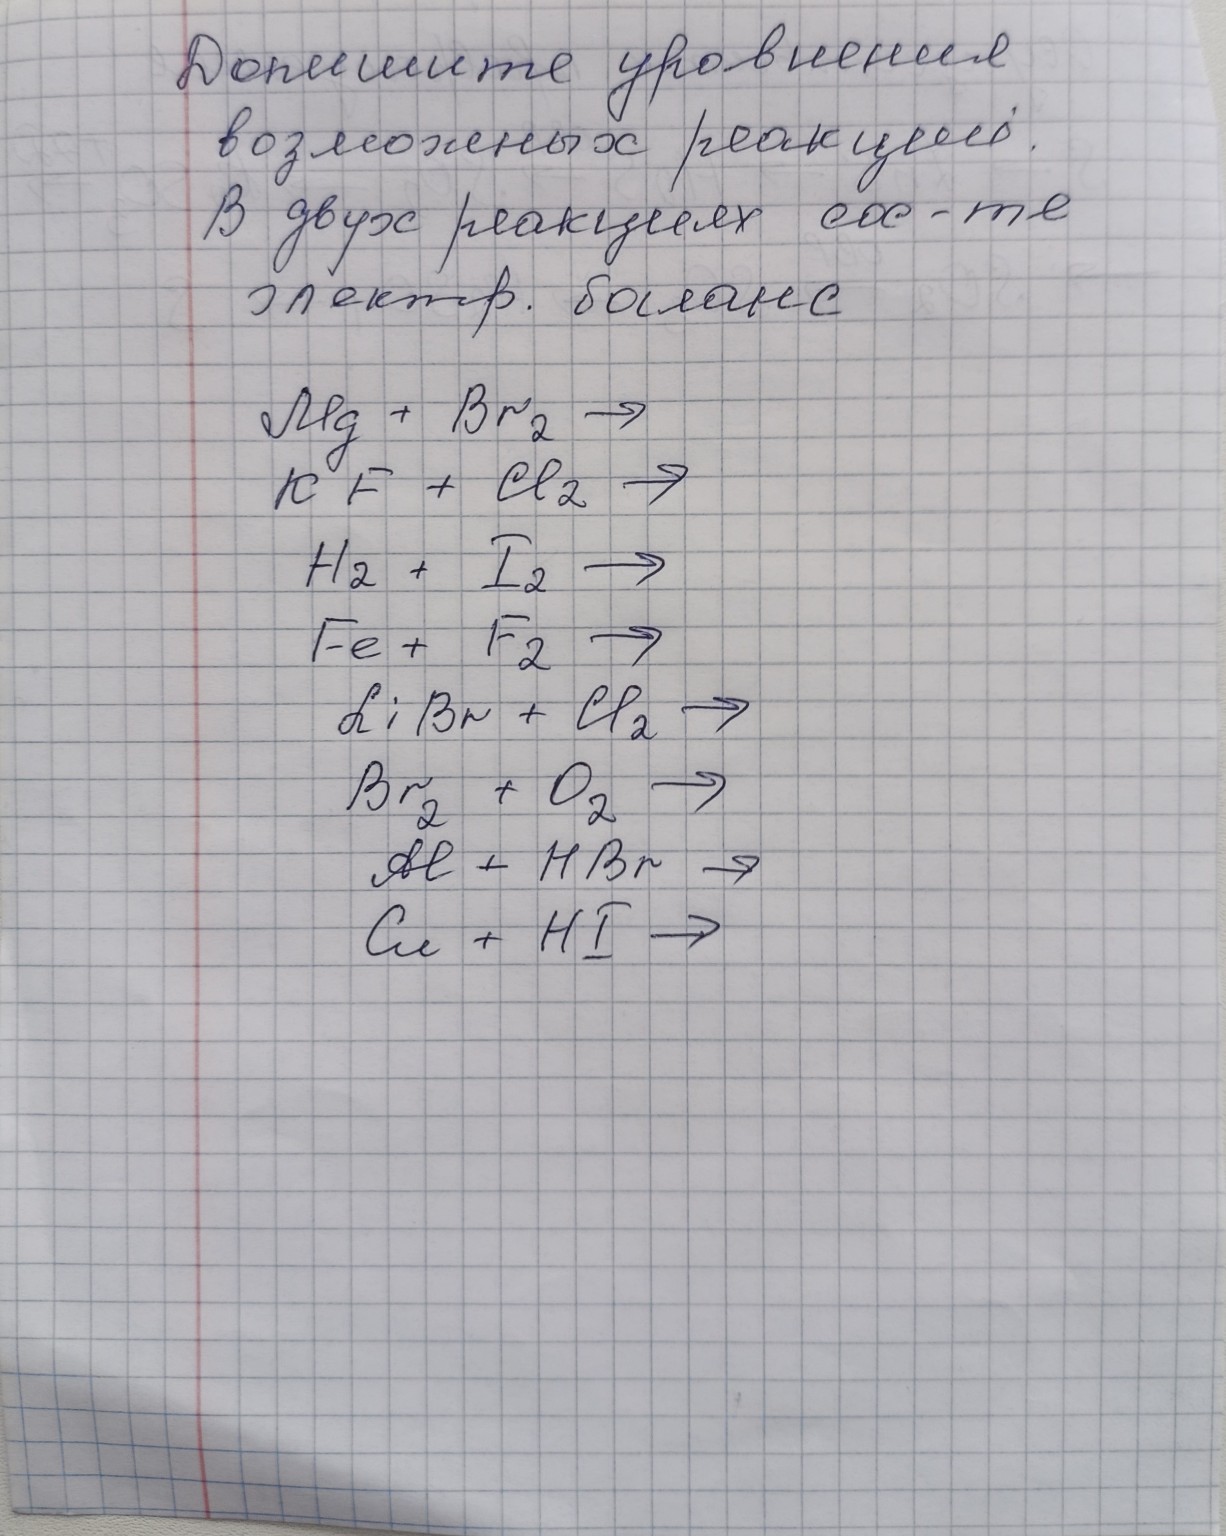 Допишите уровнения
возможных реакций.
В двух реакциях сос-те
электр. баланс
Mg + Br₂ →
KF + Cl₂ →
H₂ + I₂ →
Fe + F₂ →
LiBr + Cl₂ →
Br₂ + O₂ →
Al + HBr →
Cu + HI →